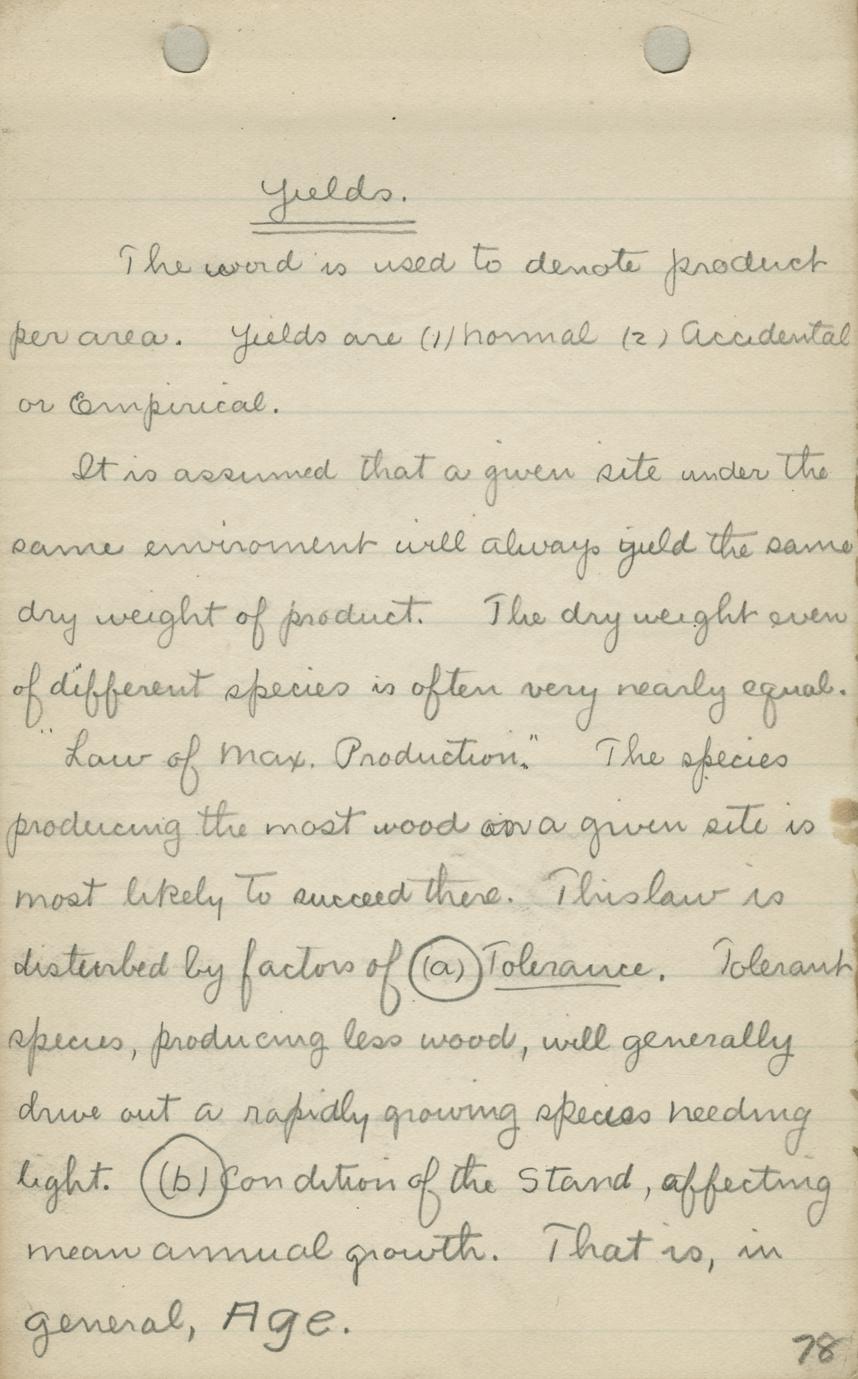 Yields.
The word is used to denote product
per area. Yields are (1) Normal (2) Accidental
or Empirical.
It is assumed that a given site under the
same enviroment will always yield the same
dry weight of product. The dry weight even
of different species is often very nearly equal.
"Law of Max. Production." The species
producing the most wood on a given site is
most likely to succeed there. This law is
disturbed by factors of (a) Tolerance. Tolerant
species, producing less wood, will generally
drive out a rapidly growing species needing
light. (b) Condition of the Stand, affecting
mean annual growth. That is, in
general, Age.
78